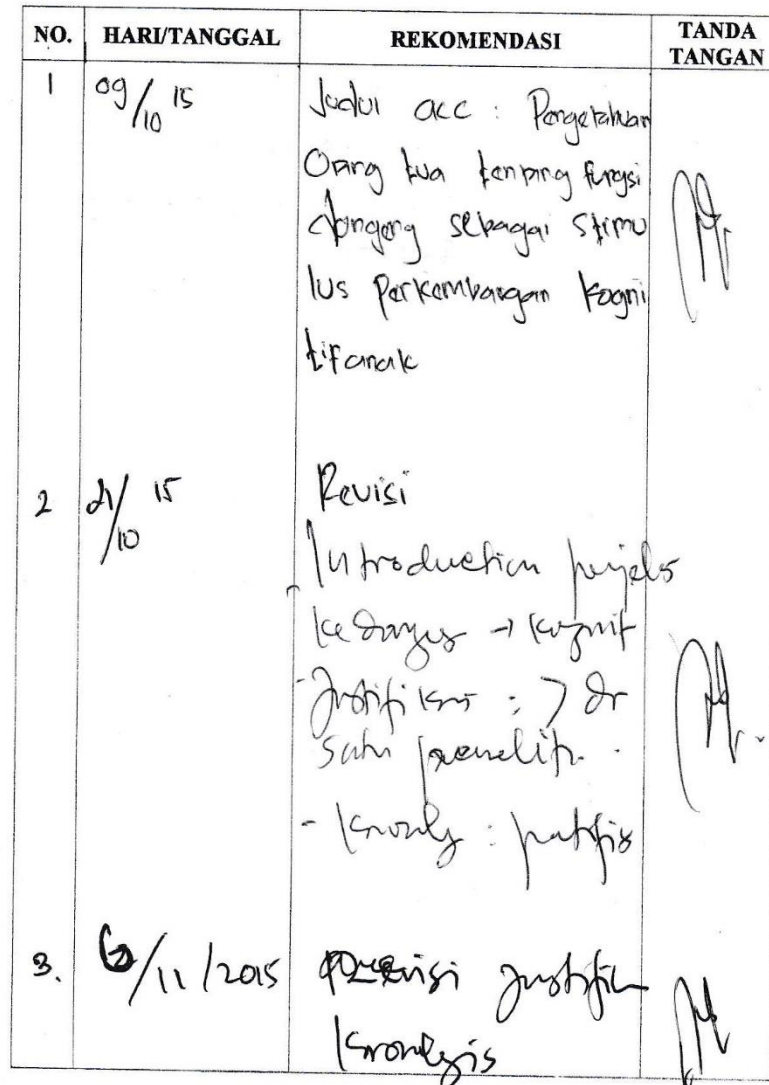 NO. HARI/TANGGAL REKOMENDASI TANDA TANGAN
1 09/10 15 Judul acc : Pengetahuan
Orang tua tentang fungsi
dongeng sebagai stimu
lus perkembangan kogni
tif anak
2 21/10 15 Revisi
Introduction
→
- Justifikasi : > dr
satu penelit.
-
3. 6/11/2015 Revisi
Kronologis